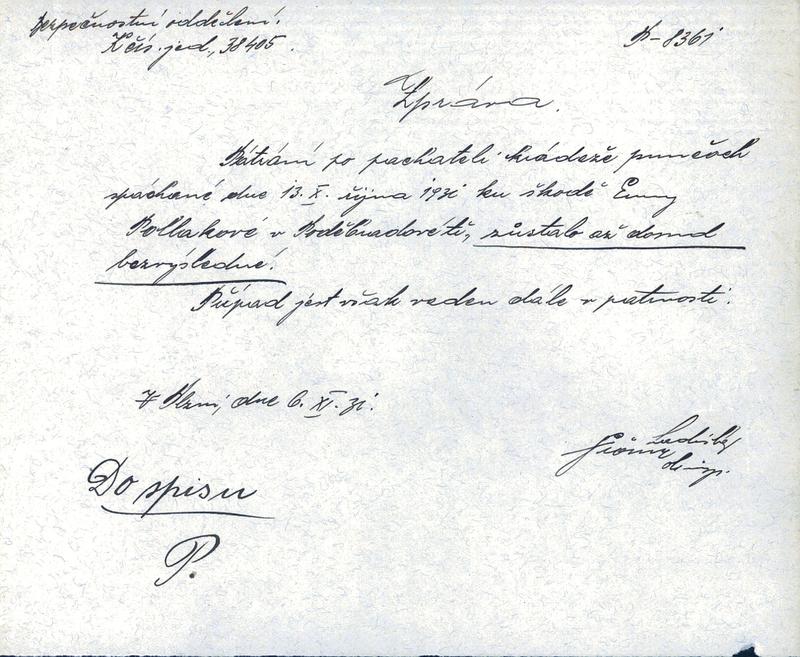 bezpečnostní oddělení.
K čís. jed., 38405. P-8361
Zpráva.
Pátrání po pachateli krádeže punčoch
spáchané dne 13. X. října 1931 ku škodě Emy
Pollakové v Poděbradově tř., zůstalo až dosud
bezvýsledné.
Případ jest však veden dále v patrnosti.
V Plzni, dne 6. XI. 31.
Ladislav
Do spisu
P.